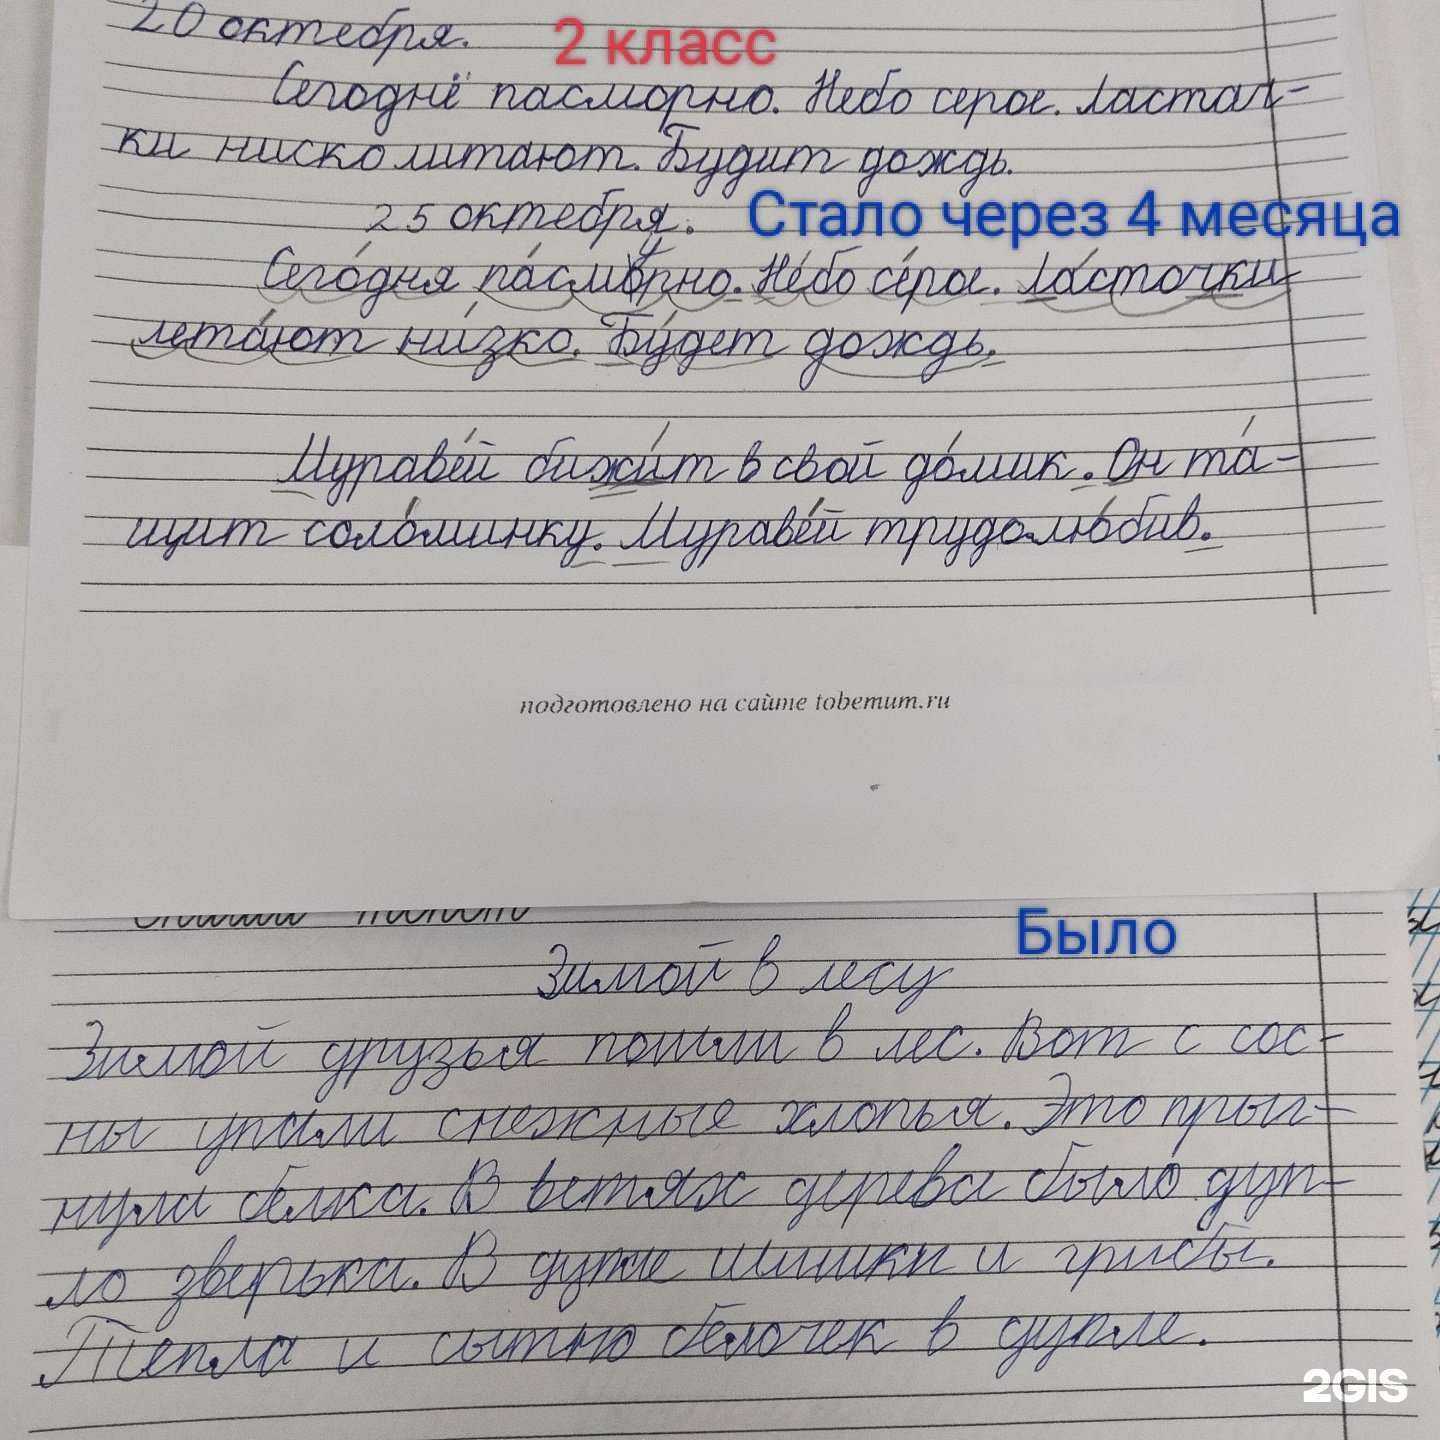 20 октебря.
2 класс
Сегоднё пасморно. Небо серое. Ластач-
ки ниско литают. Будит дождь.
25 октебря.
Стало через 4 месяца
Сего́дня па́смурно. Не́бо се́рое. Ла́сточки
лета́ют ни́зко. Бу́дет дождь.
Мураве́й бижи́т в свой до́мик. Он та́-
щит соло́минку. Мураве́й трудолю́бив.
подготовлено на сайте tobemum.ru
Было
Зимой в лесу
Зимой друзья пошли в лес. Вот с сос-
ны упали снежные хлопья. Это прыг-
нула белка. В ветях дерева было дуп-
ло зверька. В дупле шишки и грибы.
Тепла и сытно белочек в дупле.
2GIS